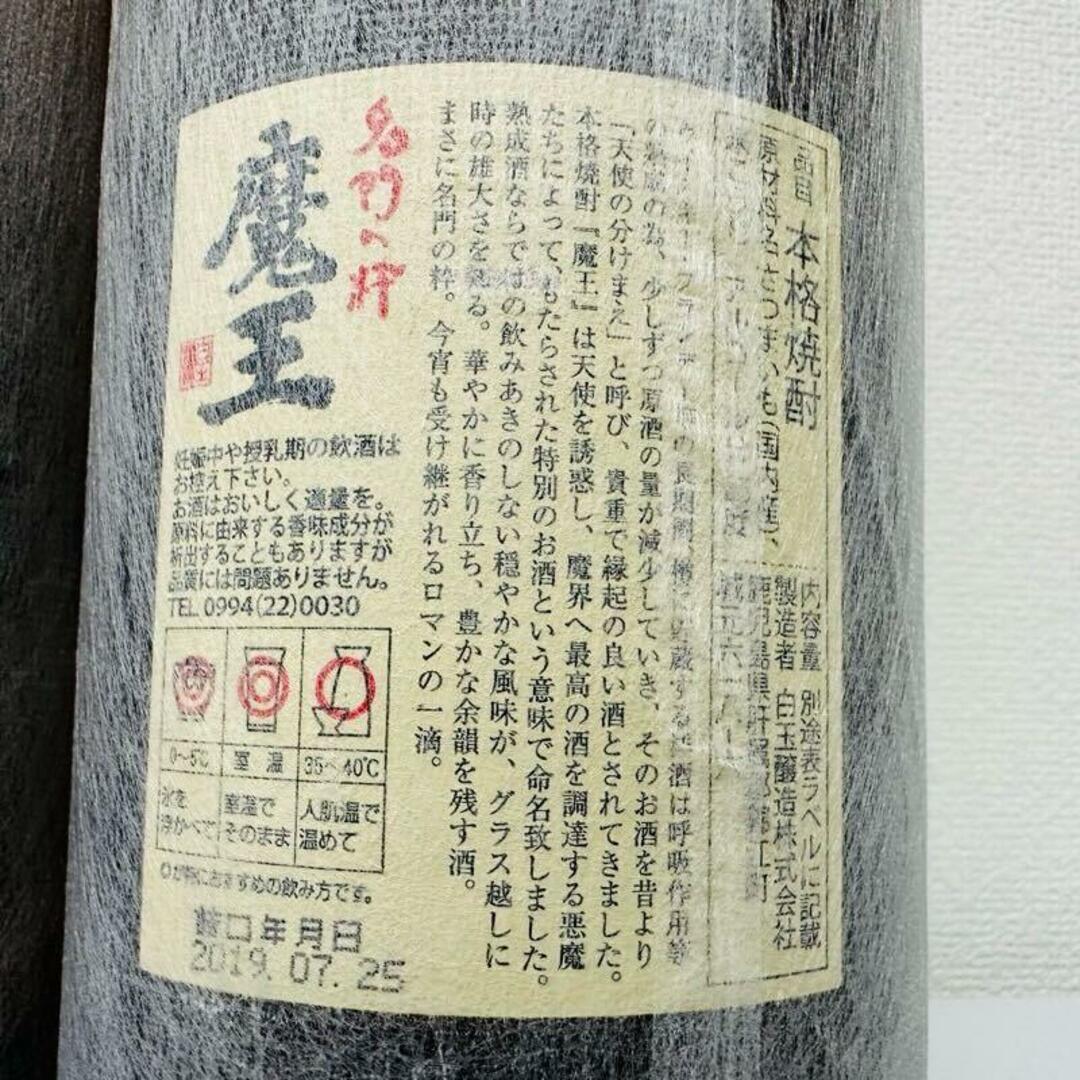 本格焼酎
原材料名 さつまいも(国内産)、
内容量 別途表ラベルに記載
製造者 白玉醸造株式会社
の長期間、
貯蔵する
酒は呼吸作用等
の為、少しずつ原酒の量が減少していき、そのお酒を昔より
「天使の分けまえ」と呼び、貴重で縁起の良い酒とされてきました。
本格焼酎『魔王』は天使を誘惑し、魔界へ最高の酒を調達する悪魔
たちによって、もたらされた特別のお酒という意味で命名致しました。
熟成酒ならではの飲みあきのしない穏やかな風味が、グラス越しに
時の雄大さを
る。華やかに香り立ち、豊かな余韻を残す酒。
まさに名門の粋。今宵も受け継がれるロマンの一滴。
名門の粋
魔王
妊娠中や授乳期の飲酒は
お控え下さい。
お酒はおいしく適量を。
原料に由来する香味成分が
析出することもありますが
品質には問題ありません。
TEL 0994(22)0030
0〜5℃ 室温 35〜40℃
氷を 室温で 人肌温で
浮かべて そのまま 温めて
◎が特におすすめの飲み方です。
詰口年月日
2019. 07. 25